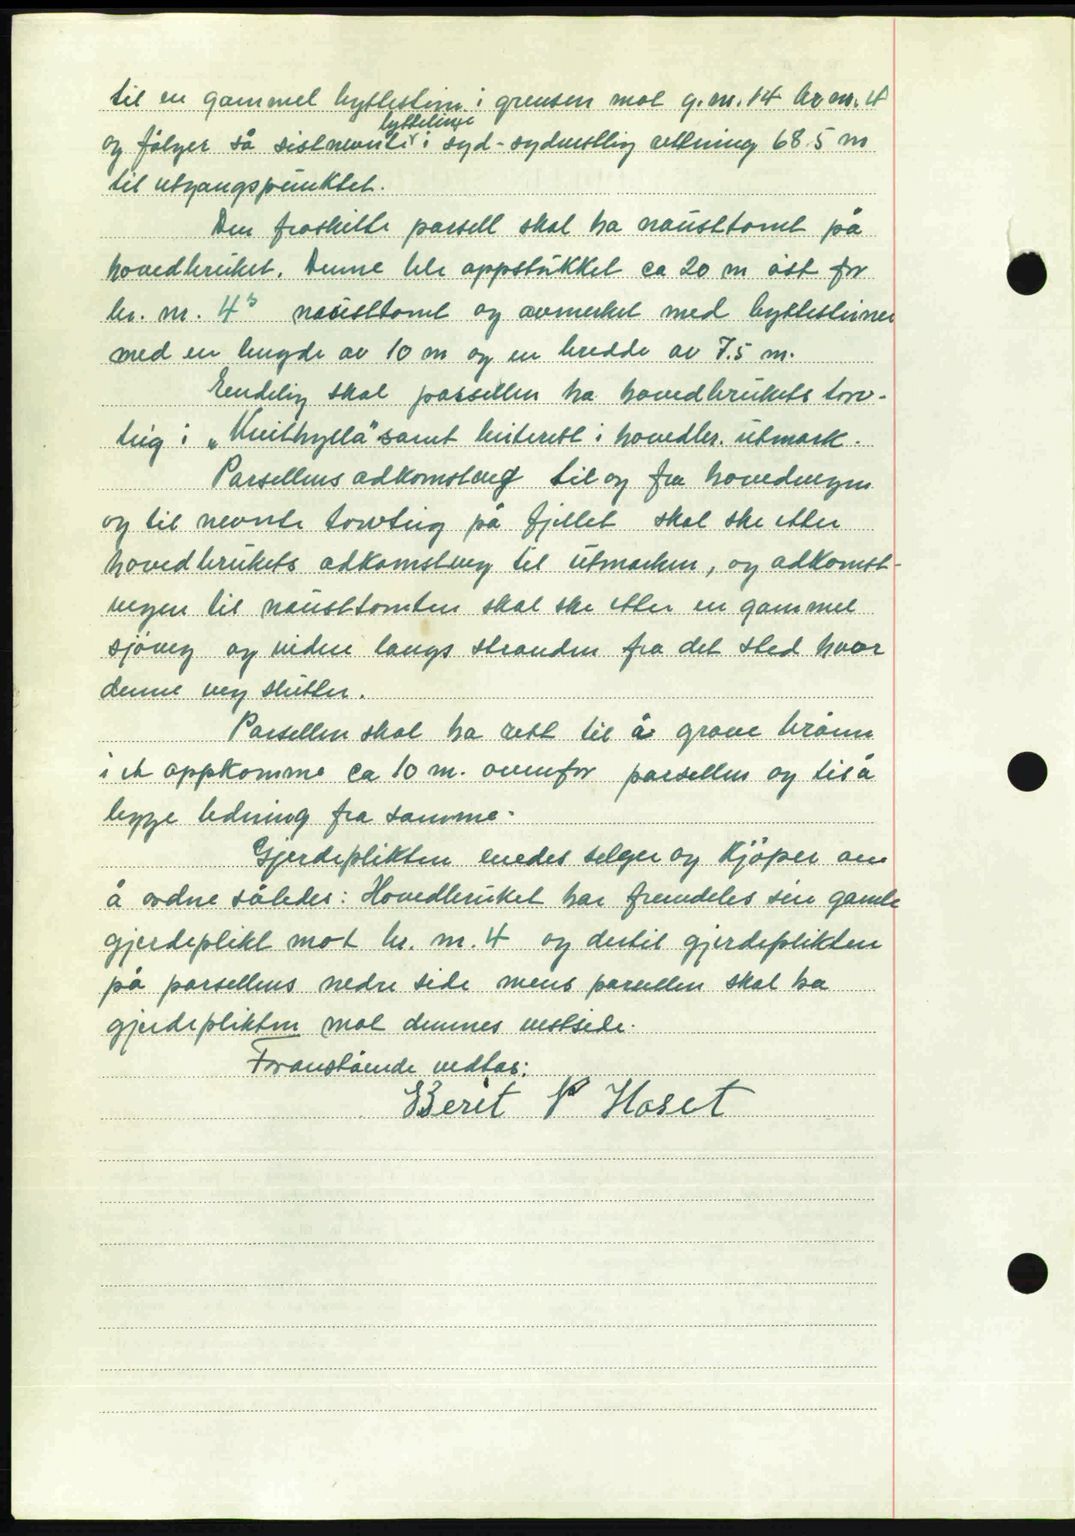 til en gammel byttestein i grensen mot g.nr. 14 br nr. 4
og følger så sistnevnte byttelinje i syd-sydvestlig retning 68.5 m
til utgangspunktet.
Den fraskilte parsell skal ha nausttomt på
hovedbruket. Denne ble oppstukket ca 20 m øst for
br. nr. 4³ nausttomt og avmerket med byttesteiner
med en lengde av 10 m og en bredde av 7.5 m.
Endelig skal parsellen ha hovedbrukets torv-
teig i samt beiterett i hovedbr. utmark.
Parsellens adkomstveg til og fra hovedvegen
og til nevnte torvteig på fjellet skal skje etter
hovedbrukets adkomstveg til utmarken, og adkomst-
vegen til nausttomten skal skje etter en gammel
sjöveg og videre langs stranden fra det sted hvor
denne veg slutter.
Parsellen skal ha rett til å grave brönn
i et oppkomme ca 10 m. ovenfor parsellen og til å
legge ledning fra samme.
Gjerdeplikten enedes selger og kjöper om
å ordne således: Hovedbruket har fremdeles sin gamle
gjerdeplikt mot br. nr. 4 og dertil gjerdeplikten
på parsellens nedre side mens parsellen skal ha
gjerdeplikten mot dennes vestside.
Foranstående vedtas:
Berit P Hoset